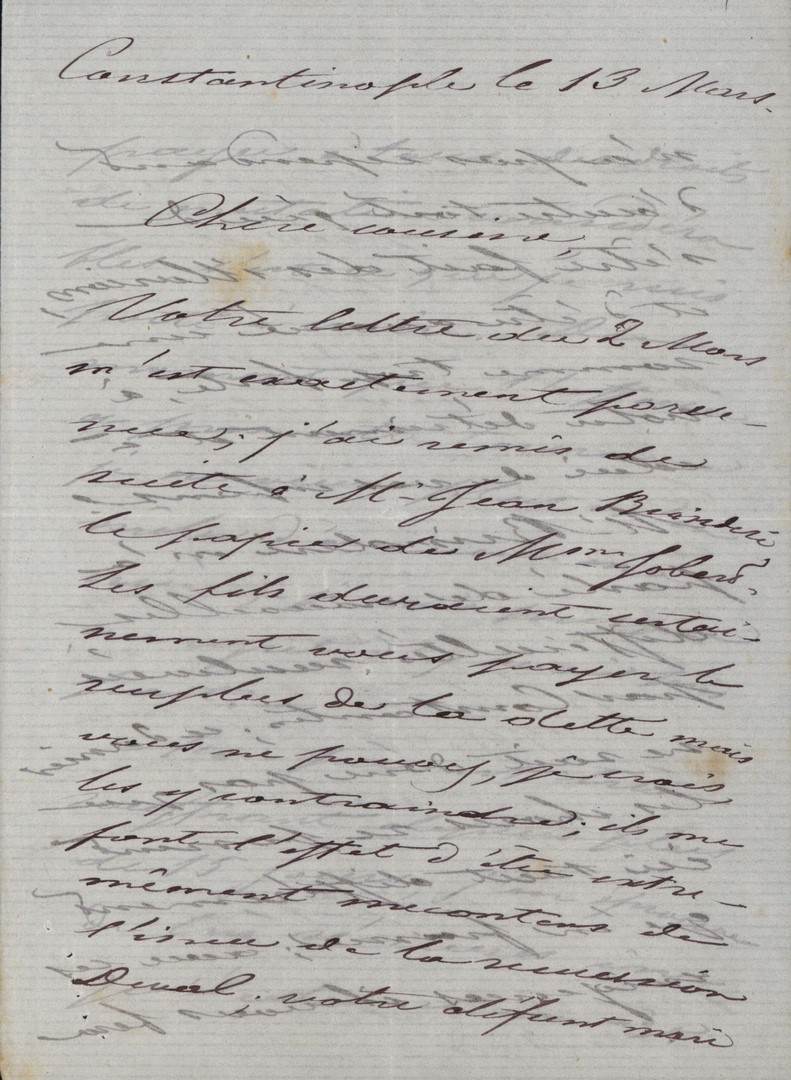 Constantinople le 13 Mars.
Chère cousine,
Votre lettre du 2 Mars
m'est exactement parve-
nue, j'ai remis de
suite à Mr Jean
le papier de Mme
Les fils devraient certai-
nement vous payer le
surplus de la dette mais
vous ne pouvez, je crois,
les y contraindre; ils me
font l'effet d'être extre-
mêment mecontens de
l'issue de la succession
Duval. votre défunt mari